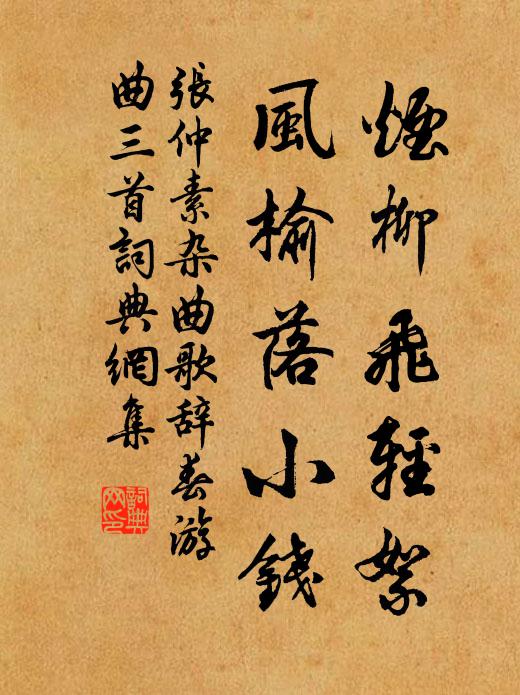 煙柳飛輕絮
風榆落小錢
張仲素杂曲歌辞春游
曲三首詞典網集
詞典
网印